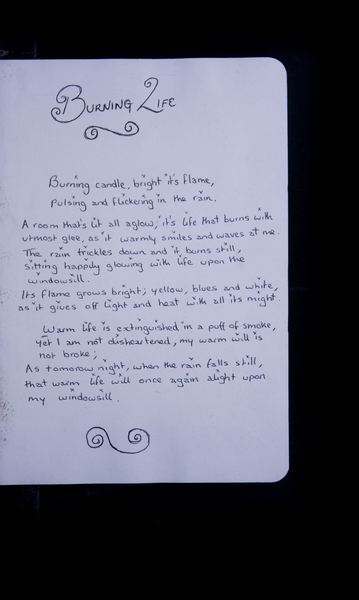 Burning Life
Burning candle, bright it's flame,
Pulsing and flickering in the rain.
A room that's lit all aglow; it's life that burns with
utmost glee, as it warmly smiles and waves at me.
The rain trickles down and it burns still,
sitting happily glowing with life upon the
windowsill.
Its flame grows bright; yellow, blues and white,
as it gives off light and heat with all its might.
Warm life is extinguished in a puff of smoke,
yet I am not disheartened, my warm will is
not broke;
As tomorow night, when the rain falls still,
that warm life will once again alight upon
my windowsill.